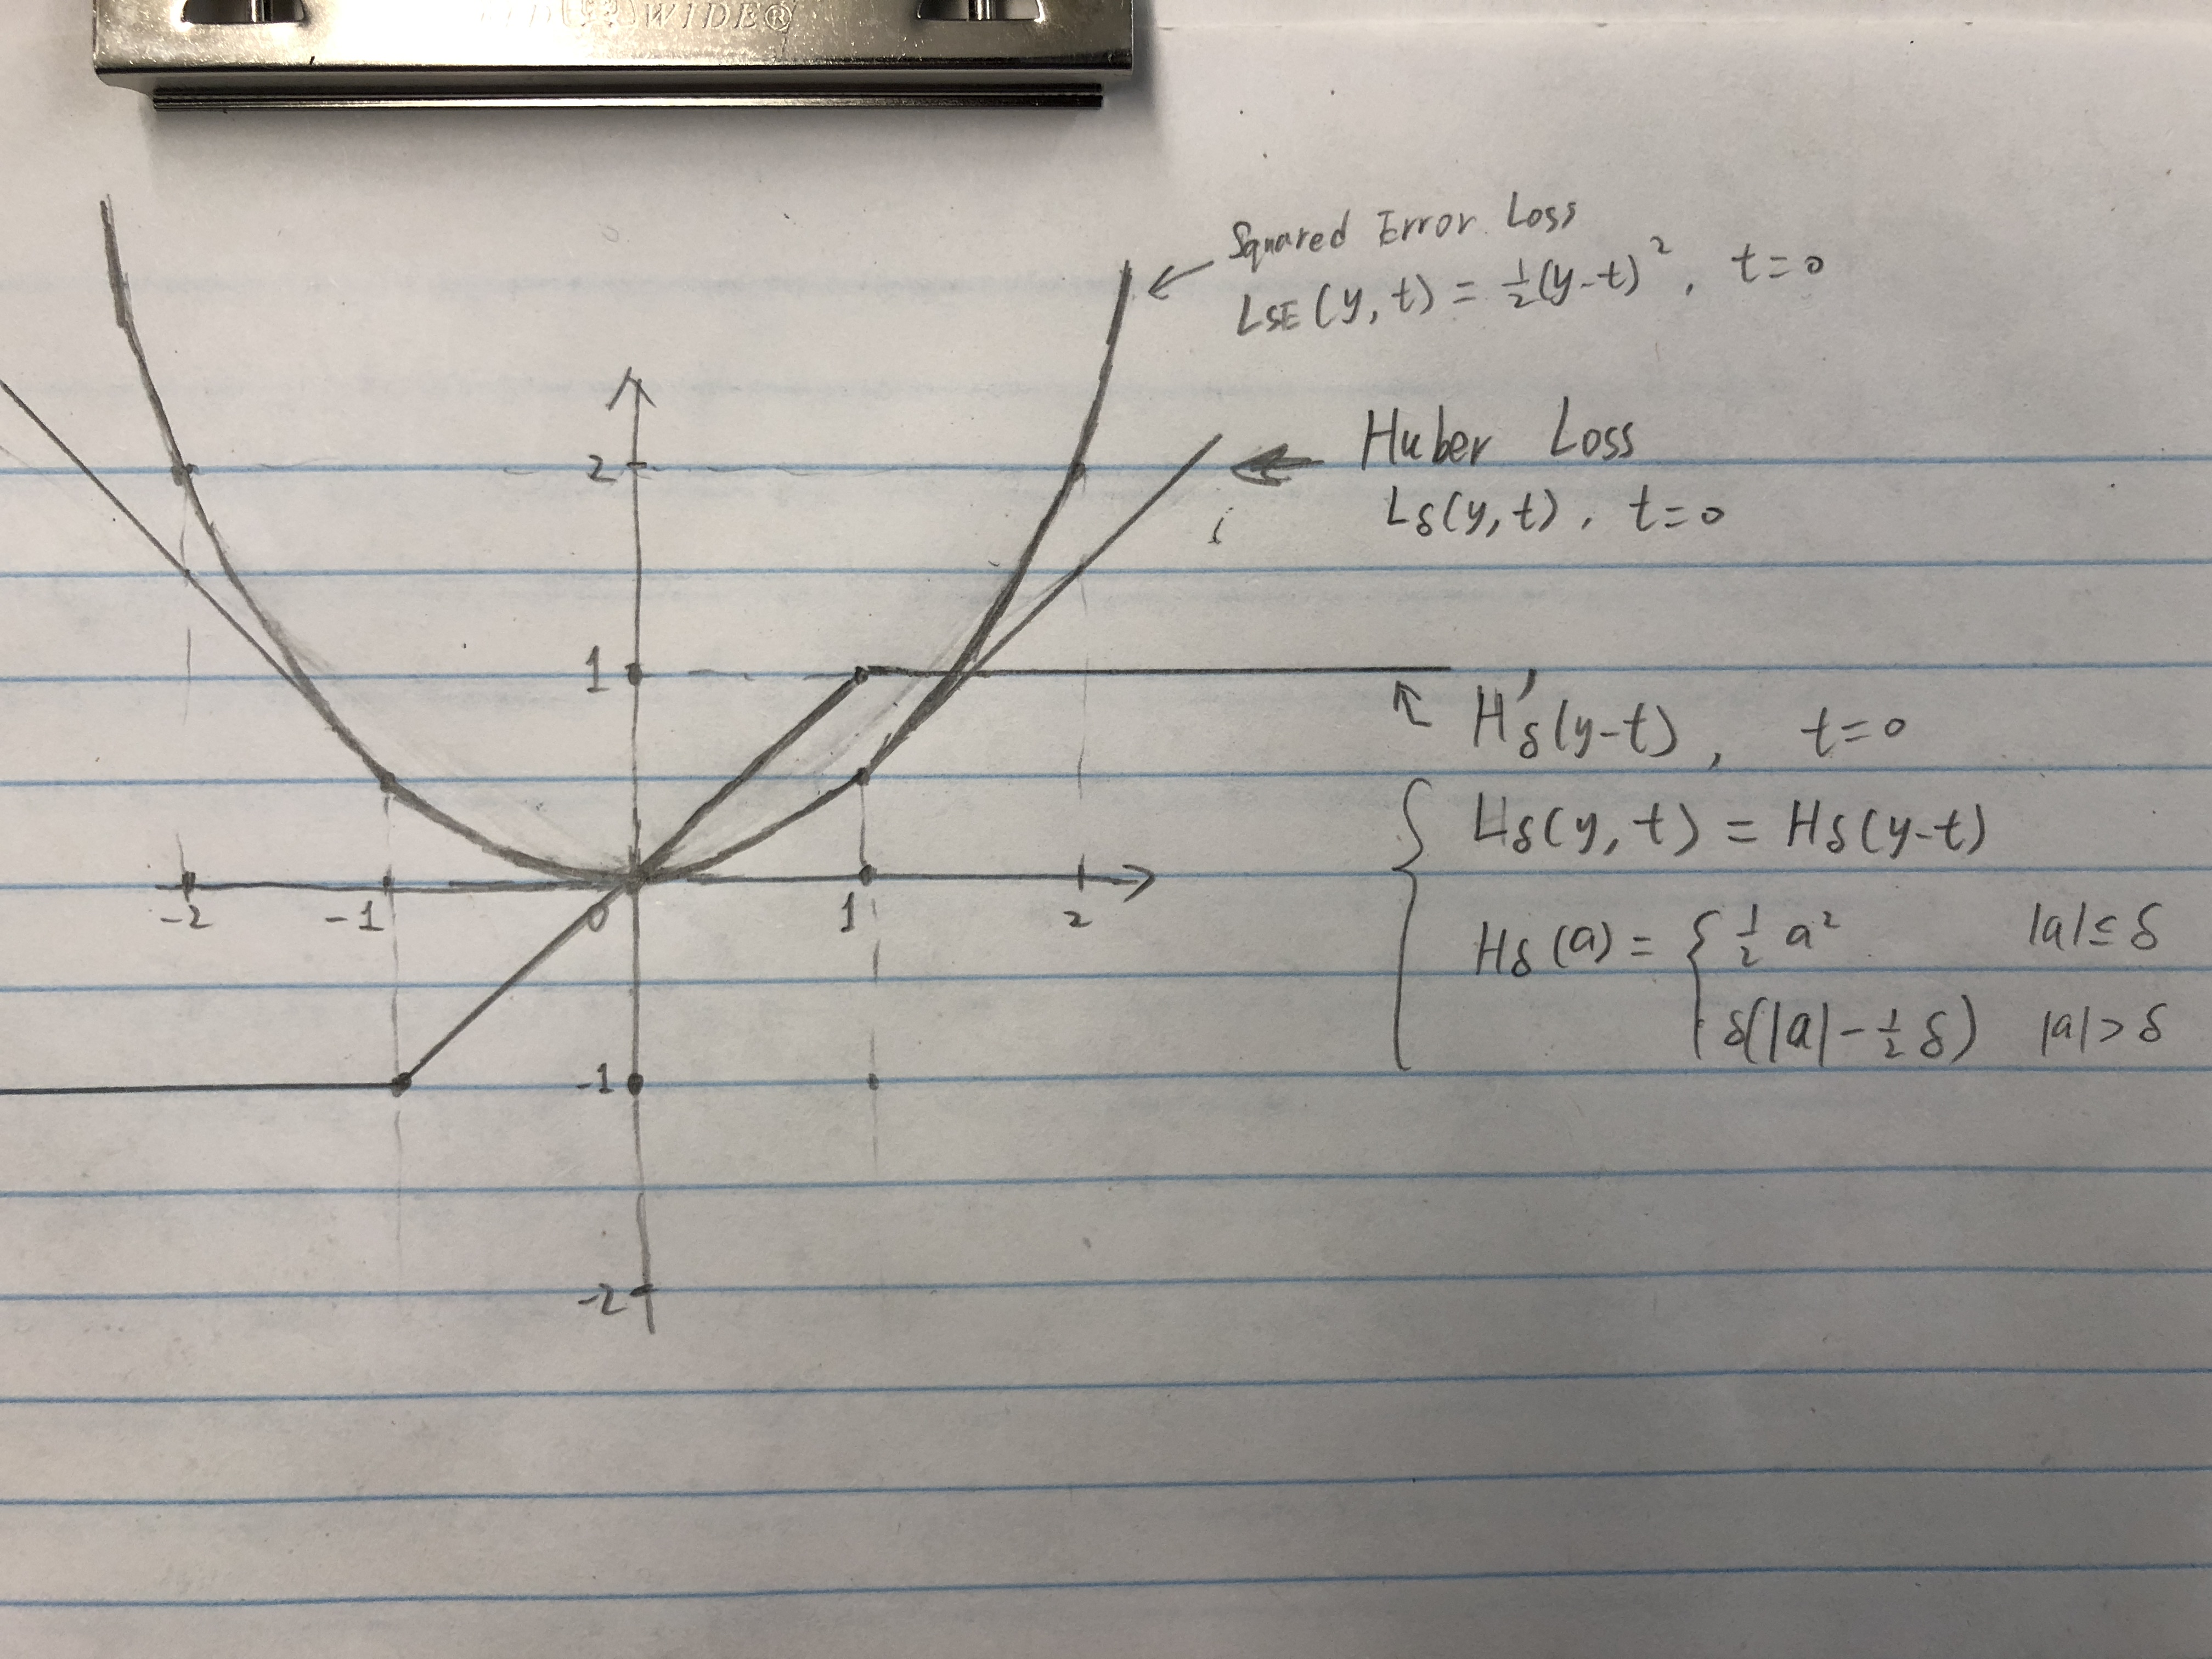 WIDE®
Squared Error Loss
L_SE(y, t) = ½(y-t)², t=0
Huber Loss
L_δ(y, t), t=0
H'_δ(y-t), t=0
L_δ(y, t) = H_δ(y-t)
H_δ(a) = { ½ a² |a| ≤ δ
δ(|a| - ½ δ) |a| > δ
2
1
-2 -1 0 1 2
-1
-2